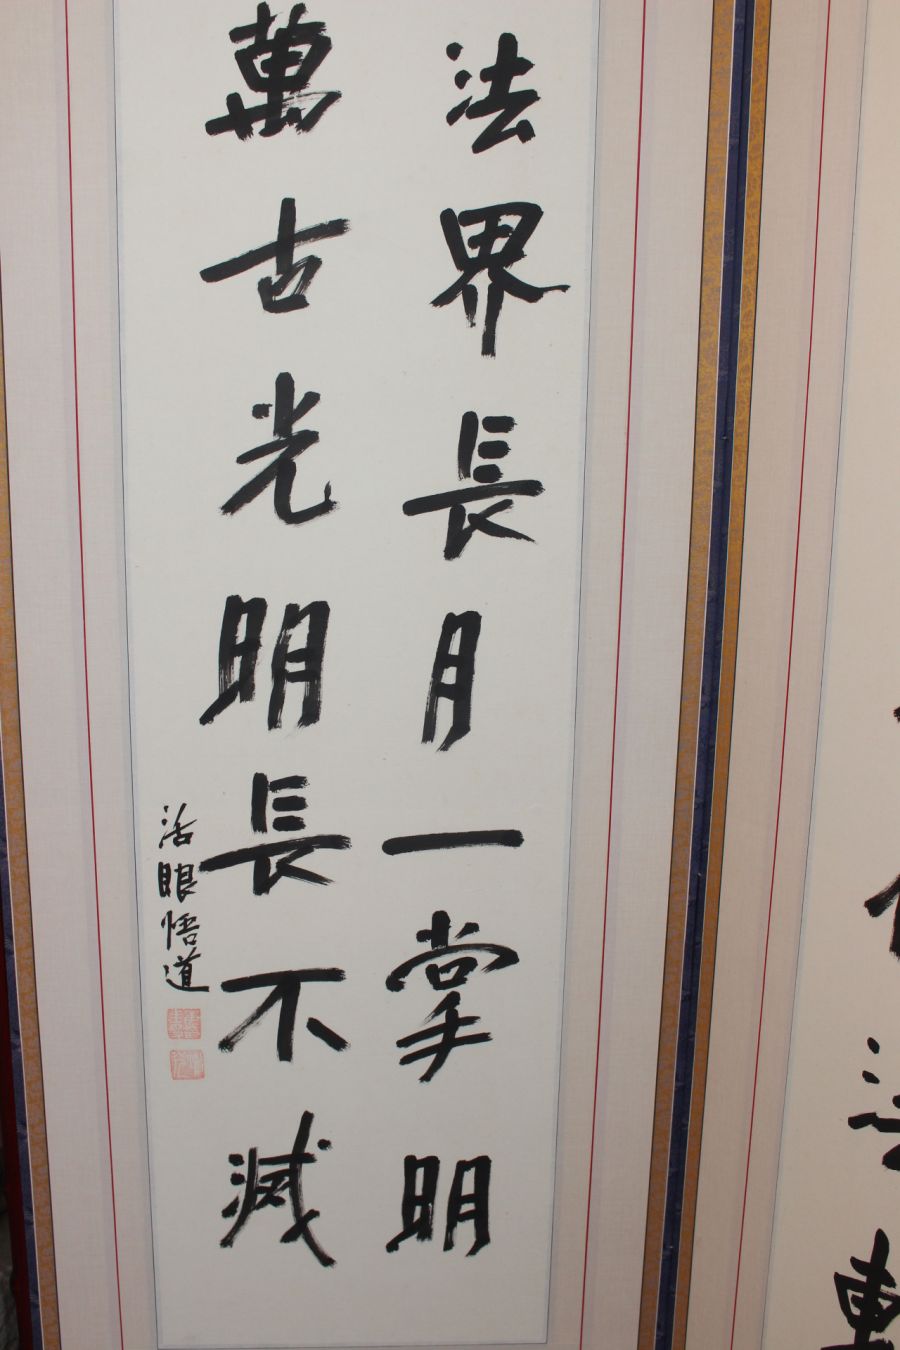 法界長月一掌明
萬古光明長不滅
活眼悟道
法